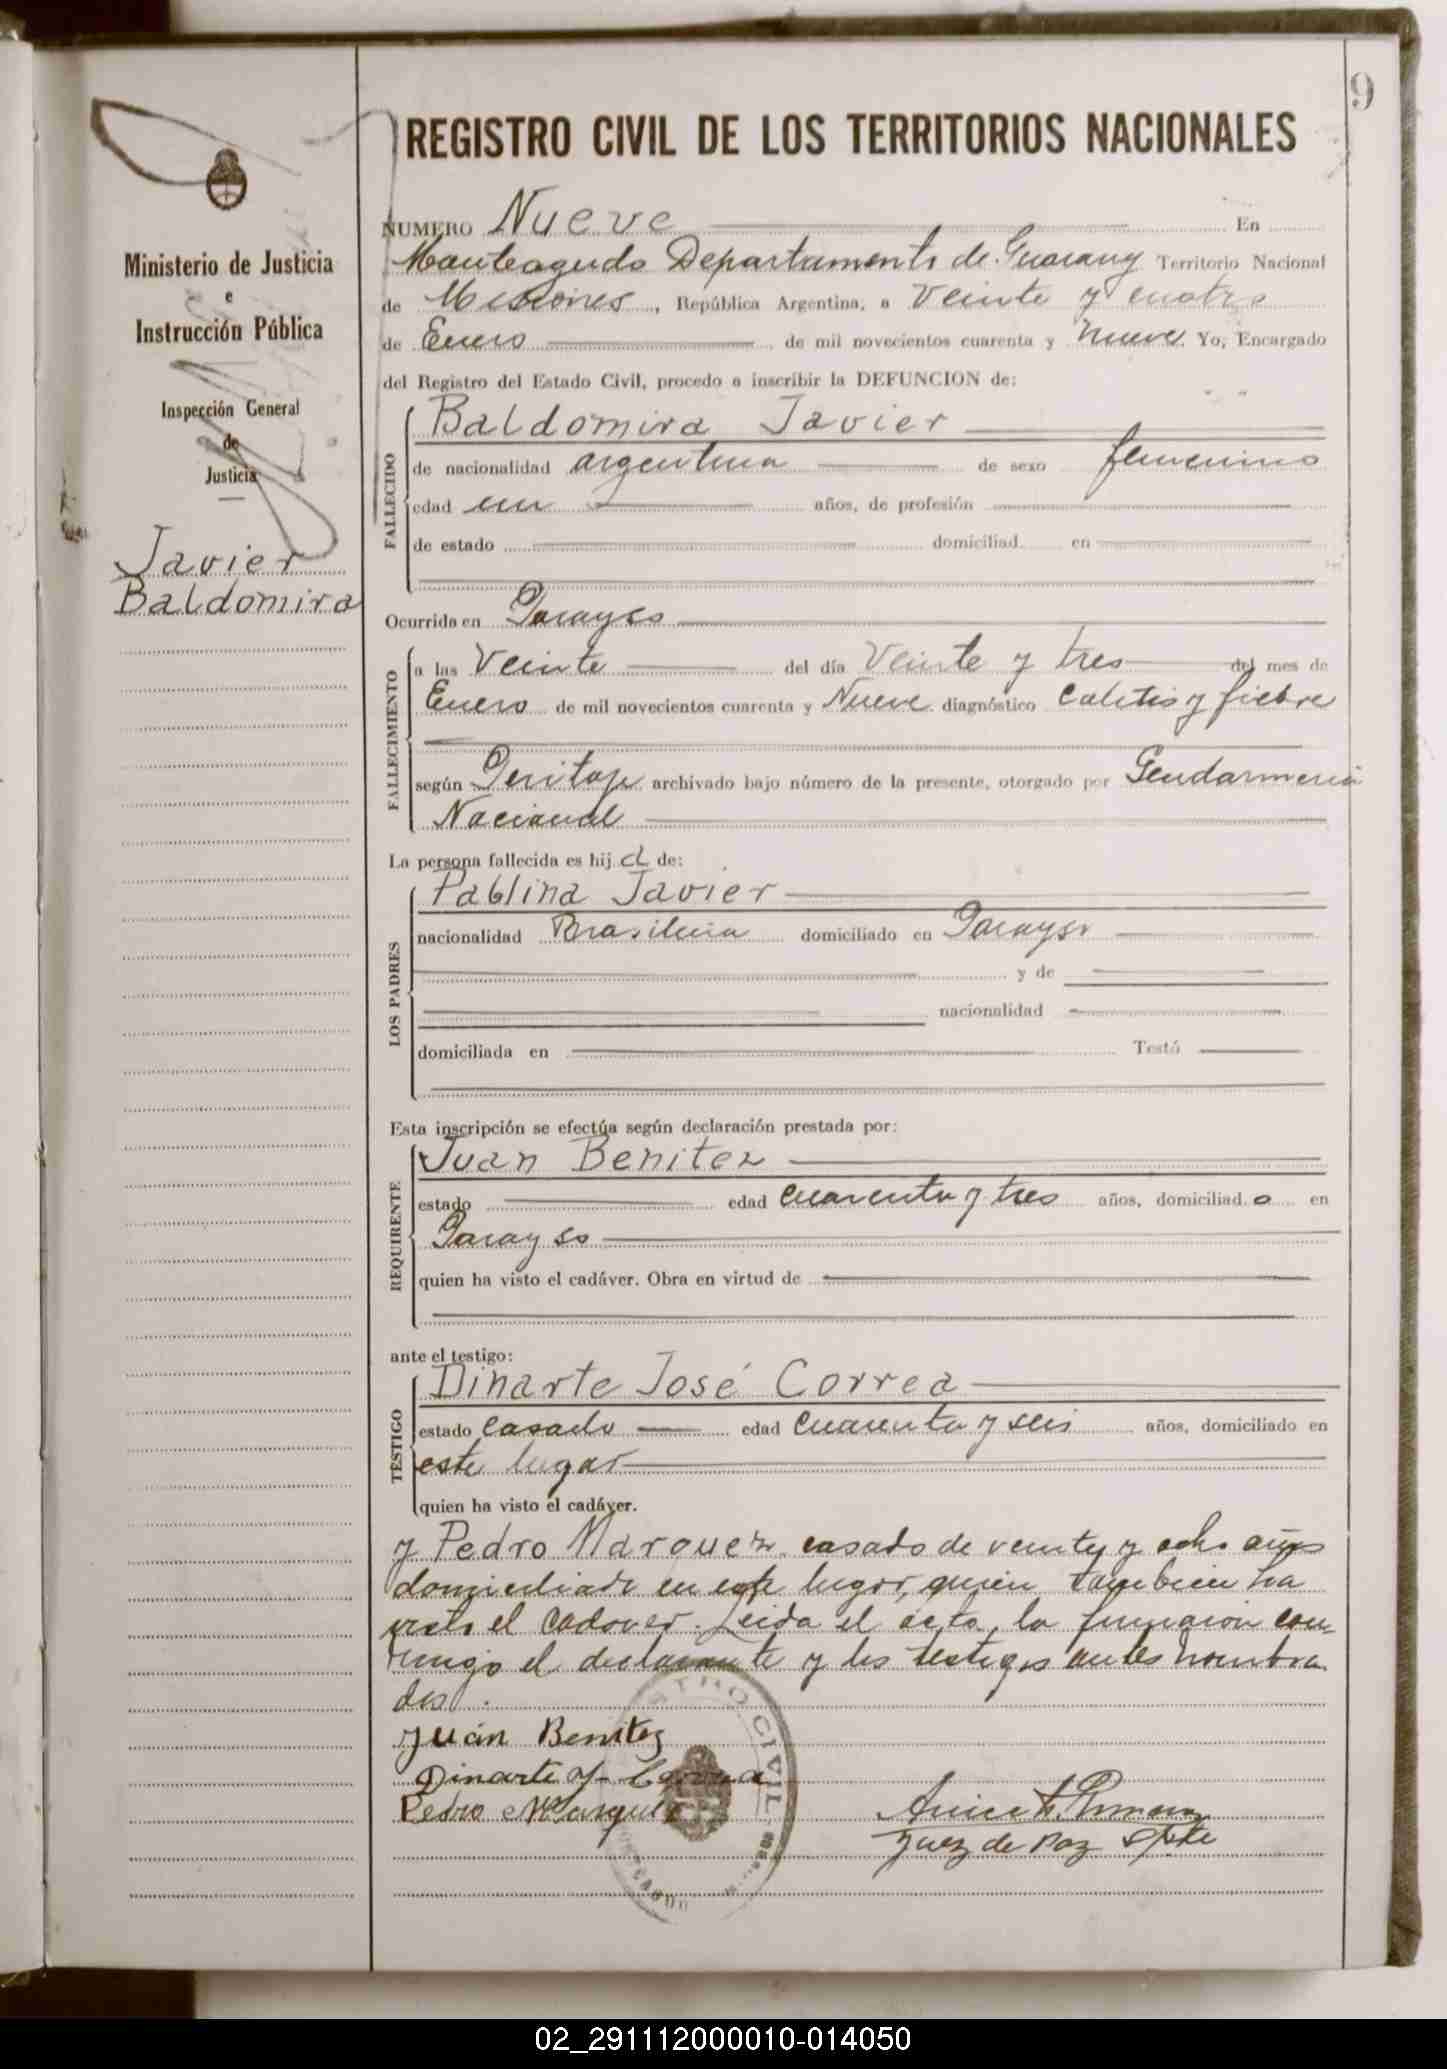 9
REGISTRO CIVIL DE LOS TERRITORIOS NACIONALES
Ministerio de Justicia
e
Instrucción Pública
Inspección General
de
Justicia
Javier
Baldomira
NUMERO Nueve En
Monteagudo Departamento de Guarany Territorio Nacional
de Misiones, República Argentina, a Veinte y cuatro
de Enero de mil novecientos cuarenta y nueve. Yo, Encargado
del Registro del Estado Civil, procedo a inscribir la DEFUNCION de:
FALLECIDO
Baldomira Javier
de nacionalidad argentina de sexo femenino
edad un años, de profesión
de estado domiciliad en
Ocurrida en Parayso
FALLECIMIENTO
a las Veinte del día Veinte y tres del mes de
Enero de mil novecientos cuarenta y Nueve diagnóstico Colitis y fiebre
según Peritaje archivado bajo número de la presente, otorgado por Gendarmeria
Nacional
La persona fallecida es hij a de:
LOS PADRES
Pablina Javier
nacionalidad Brasileña domiciliado en Parayso
y de
nacionalidad
domiciliada en Testó
Esta inscripción se efectúa según declaración prestada por:
REQUIRENTE
Juan Benitez
estado edad cuarenta y tres años, domiciliad o en
Parayso
quien ha visto el cadáver. Obra en virtud de
ante el testigo:
TESTIGO
Dinarte José Correa
estado casado edad cuarenta y seis años, domiciliado en
este lugar
quien ha visto el cadáver.
y Pedro Marquez casado de veinte y ocho años
domiciliado en este lugar, quien tambien ha
visto el cadaver. Leida el acta, la firmaron con-
migo el declarante y los testigos antes nombra
dos.
Juán Benitez
Dinarte J. Correa
Pedro Marquez
Juez de Paz Splte
REGISTRO CIVIL
MONTEAGUDO
02_291112000010-014050